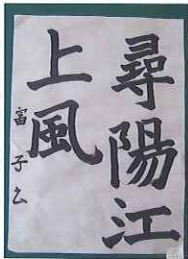 尋陽江
上風
富子乙